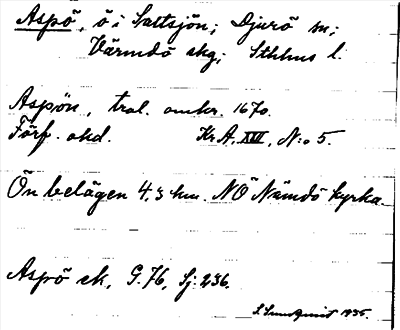 Aspö, ö i Saltsjön; Djurö sn;
Värmdö skg; Sthlms l.
Aspön, trol. omkr. 1670.
Förf. okd. KrA, XVII, N:o 5.
Ön belägen 4,3 km. NÖ Nämdö kyrka.
Aspö ek, G. 76, Sj: 236.
S. Sundqvist 1935.